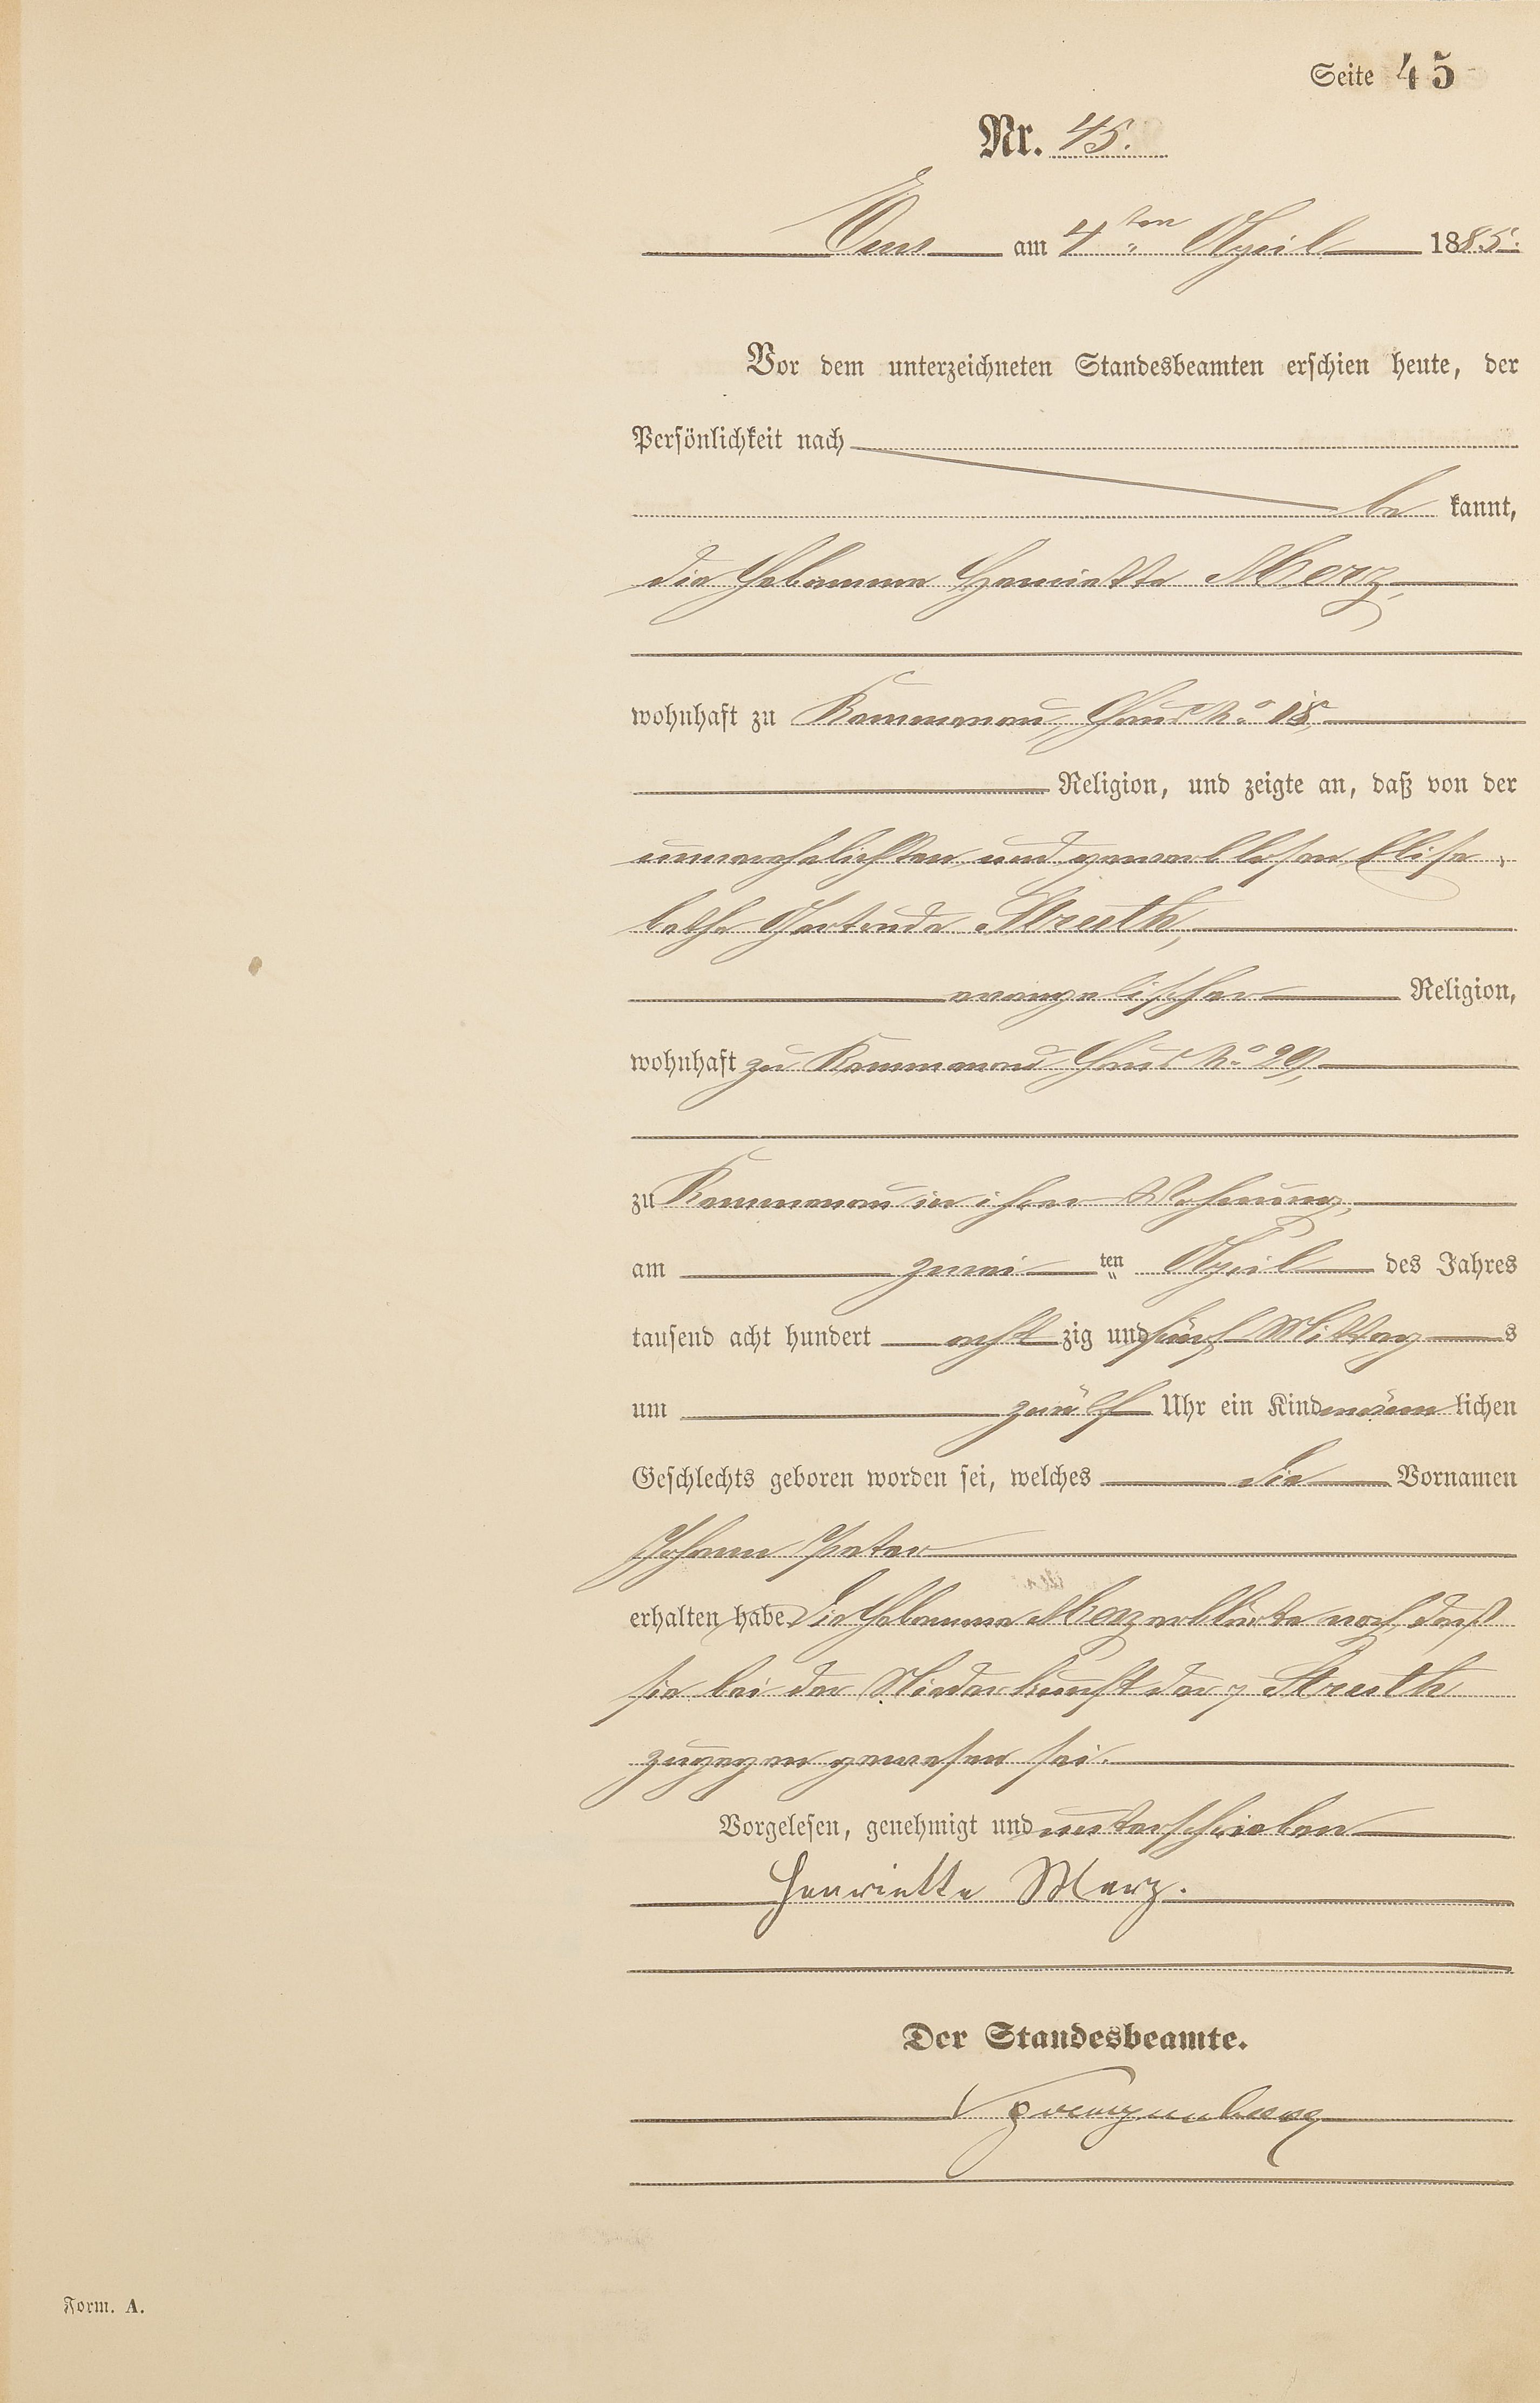 Seite 45
Nr. 45.
Ems am 4ten April 1885.
Vor dem unterzeichneten Standesbeamten erschien heute, der
Persönlichkeit nach
be kannt,
die Hebamme Henriette Merz,
wohnhaft zu Kemmenau, Haus No 18,
Religion, und zeigte an, daß von der
unverehelichten und gewerblosen Elisa-
betha Gertrude Struth,
evangelischer Religion,
wohnhaft zu Kemmenau Haus No 29,
zu Kemmenau in ihrer Wohnung,
am zwei ten April des Jahres
tausend acht hundert acht zig und fünf Mittag s
um zwölf Uhr ein Kind männ lichen
Geschlechts geboren worden sei, welches die Vornamen
Johann Peter
erhalten habe. Die Hebamme Merz erklärte noch, daß
sie bei der Niederkunft der Struth
zugegen gewesen sei.
Vorgelesen, genehmigt und unterschrieben
Henriette Merz.
Der Standesbeamte.
Form. A.